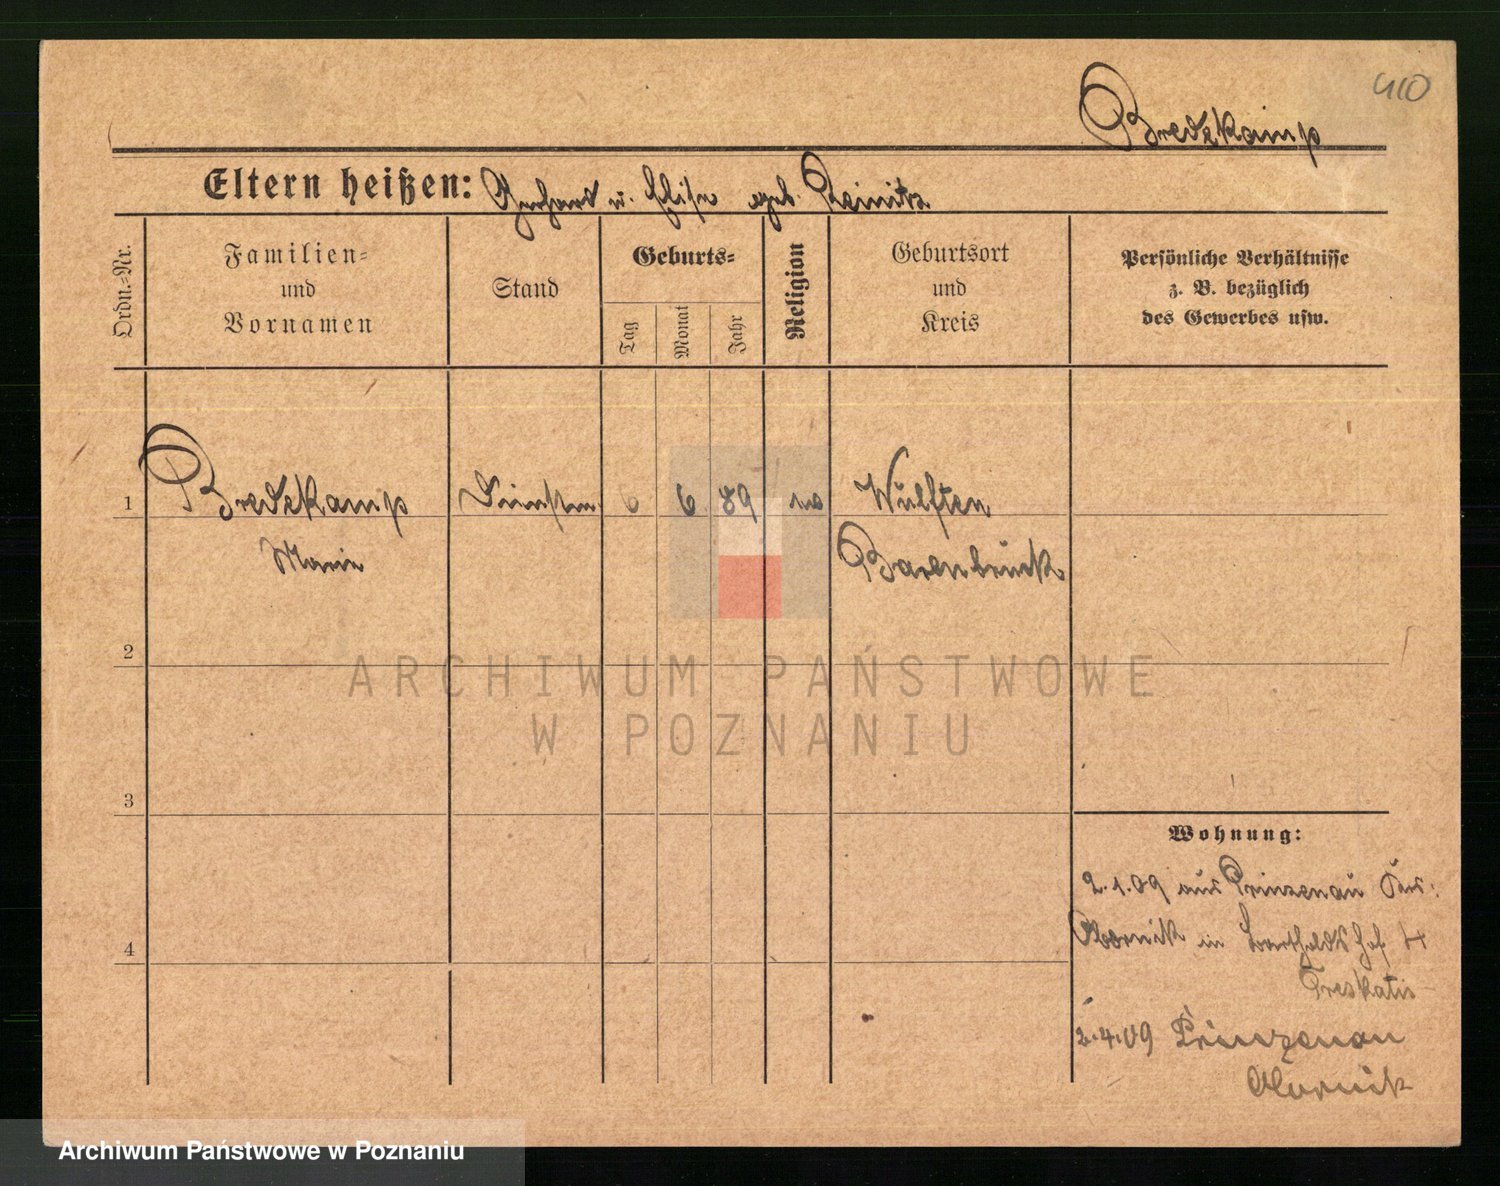 410
Bredekamp
Eltern heißen: Gerhard u. Elise geb. Reinitz
Ordn.-Nr.
Familien- und Vornamen
Stand
Geburts-
Tag
Monat
Jahr
Religion
Geburtsort und Kreis
Persönliche Verhältnisse
z. B. bezüglich
des Gewerbes usw.
1 Bredekamp 6 6 89 Wulften
Marie
2
3
4
Wohnung:
2.1.09 aus Prinzenau
Obornik in
2.4.09 Prinzenau
Obornik
ARCHIWUM PAŃSTWOWE
W POZNANIU
Archiwum Państwowe w Poznaniu